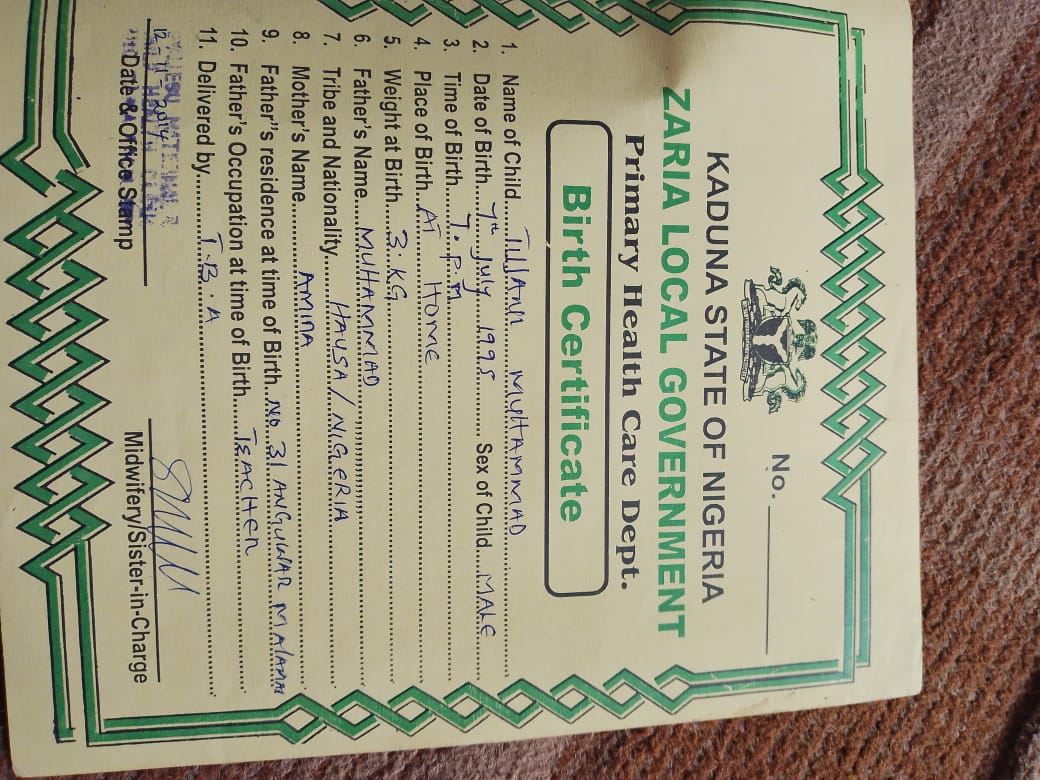 No.
KADUNA STATE OF NIGERIA
ZARIA LOCAL GOVERNMENT
Primary Health Care Dept.
Birth Certificate
1. Name of Child TIJJANI MUHAMMAD
2. Date of Birth 7th July 1995 Sex of Child MALE
3. Time of Birth 7.P.M
4. Place of Birth At HOME
5. Weight at Birth 3.KG
6. Father's Name MUHAMMAD
7. Tribe and Nationality HAUSA/NIGERIA
8. Mother's Name AMINA
9. Father"s residence at time of Birth No. 31 ANGUWAR
10. Father's Occupation at time of Birth TEACHER
11. Delivered by T.B.A
MATERNAL
Date & Office Stamp Midwifery/Sister-in-Charge